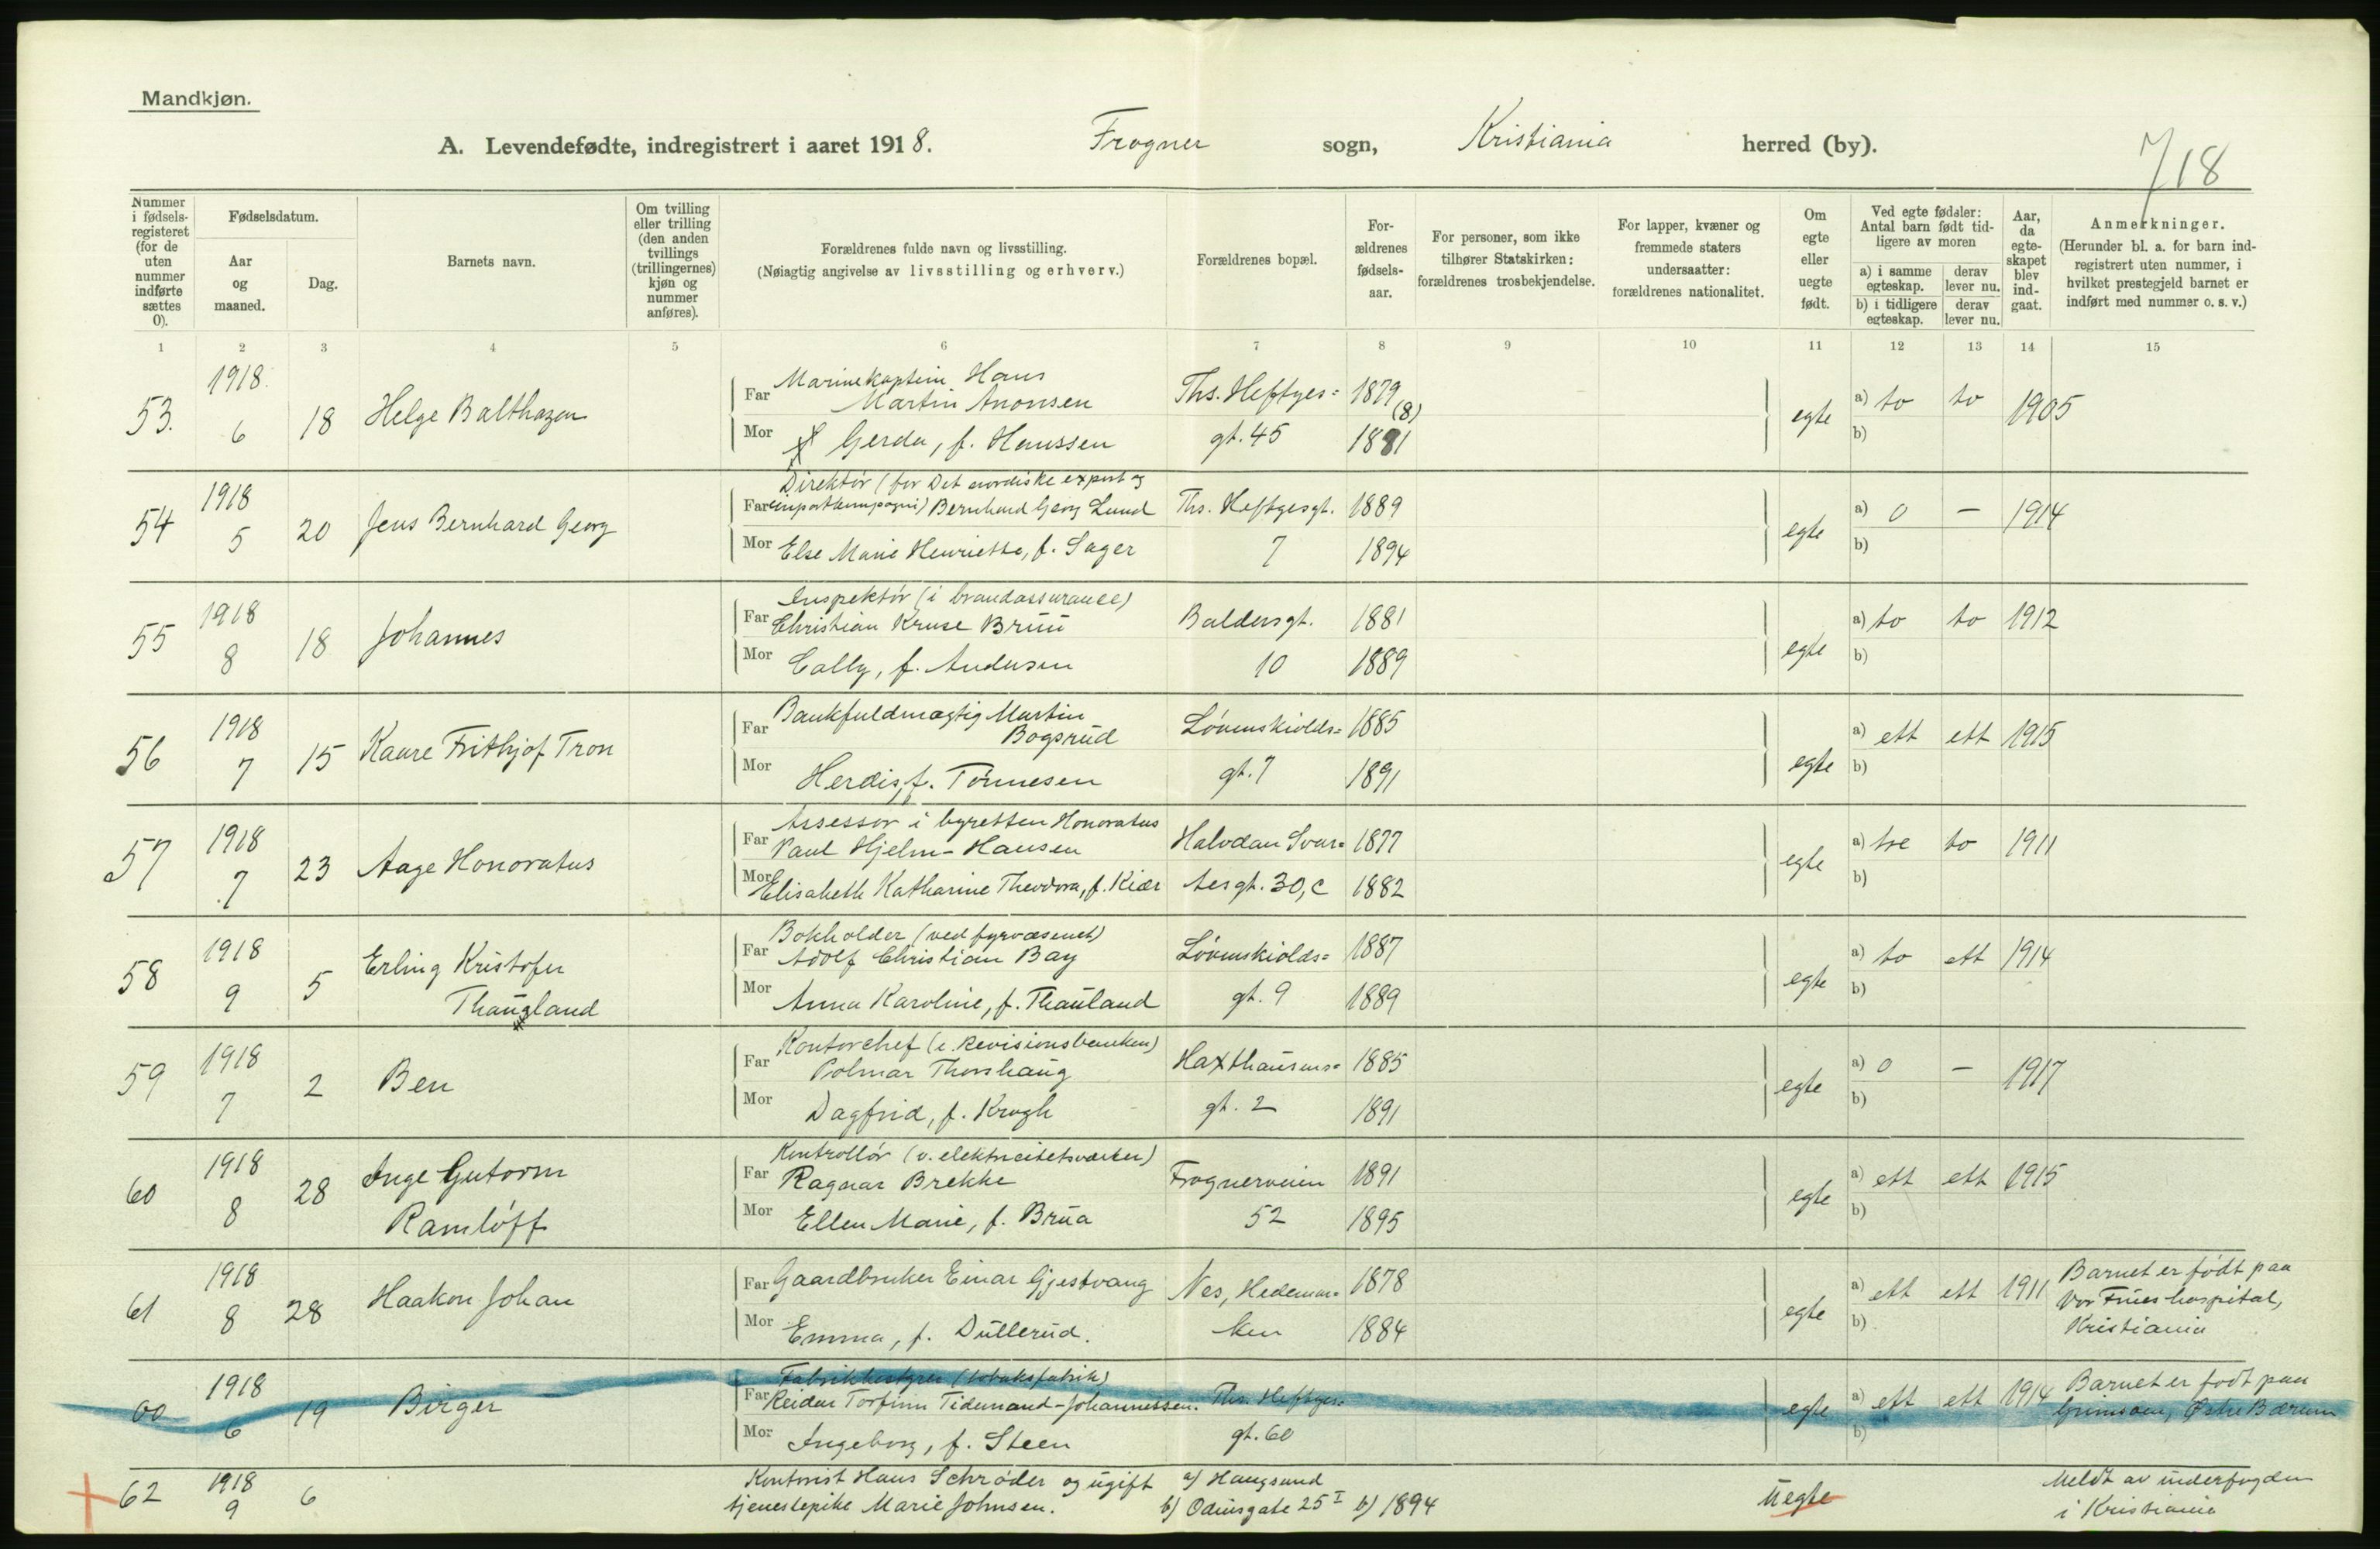 Mandkjøn.
A. Levendefødte, indregistrert i aaret 1918. Frogner sogn, Kristiania herred (by).
718
Nummer i fødsels-registeret (for de uten nummer indførte sættes 0).
Fødselsdatum.
Aar og maaned.
Dag.
Barnets navn.
Om tvilling eller trilling (den anden tvillings (trillingernes) kjøn og nummer anføres).
Forældrenes fulde navn og livsstilling.
(Nøiagtig angivelse av livsstilling og erhverv.)
Forældrenes bopæl.
For-ældrenes fødsels-aar.
For personer, som ikke tilhører Statskirken: forældrenes trosbekjendelse.
For lapper, kvæner og fremmede staters undersaatter: forældrenes nationalitet.
Om egte eller uegte født.
Ved egte fødsler: Antal barn født tid-ligere av moren
a) i samme egteskap. derav lever nu.
b) i tidligere egteskap. derav lever nu.
Aar, da egte-skapet blev ind-gaat.
Anmerkninger.
(Herunder bl. a. for barn ind-registrert uten nummer, i hvilket prestegjeld barnet er indført med nummer o. s. v.)
1 2 3 4 5 6 7 8 9 10 11 12 13 14 15
53. 1918. 6 18 Helge Balthazar
Far Marinekaptein Hans
Martin Aronsen Ths. Heftyes= 1879
Mor Gerda, f. Hanssen gt. 45 1881 (8)
egte a) to to 1905
b)
54 1918 5 20 Jens Bernhard Georg
Direktør (for Det nordiske export og
Far importkompagni) Bernhard Georg Lund Ths. Heftyesgt. 1889
Mor Else Marie Henriette, f. Sager 7 1894
egte a) 0 — 1914
b)
55 1918 8 18 Johannes
Inspektør (i brandassurance)
Far Christian Kruse Bruu Baldersgt. 1881
Mor Cally, f. Andersen 10 1889
egte a) to to 1912
b)
56 1918 7 15 Kaare Frithjof Tron
Far Bankfuldmægtig Martin
Bogsrud Løvenskiolds= 1885
Mor Herdis, f. Tønnesen gt. 7 1891
egte a) ett ett 1915
b)
57 1918 7 23 Aage Honoratus
Assessor i byretten Honoratus
Far Paul Hjelm-Hansen Halvdan Svar= 1877
Mor Elisabeth Katharine Theodora, f. Kiær tesgt. 30, c 1882
egte a) tre to 1911
b)
58 1918 9 5 Erling Kristofer
Thaugland
Bokholder (ved fyrvæsenet)
Far Adolf Christian Bay Løvenskiolds= 1887
Mor Anna Karoline, f. Thauland gt. 9 1889
egte a) to ett 1914
b)
59 1918 7 2 Ben
Kontorchef (i Revisionsbanken)
Far Polmar Thorshaug Haxthausens= 1885
Mor Dagfrid, f. Krogh gt. 2 1891
egte a) 0 — 1917
b)
60 1918 8 28 Inge Gutorm
Ramløff
Kontrollør (v. elektricitetsverker)
Far Ragnar Brekke Frognerveien 1891
Mor Ellen Marie, f. Brua 52 1895
egte a) ett ett 1915
b)
61 1918 8 28 Haakon Johan
Far Gaardbruker Einar Gjestvang Nes, Hedemar= 1878
Mor Emma, f. Dullerud. ken 1884
egte a) ett ett 1911
b)
Barnet er født paa
Vor Frues hospital,
Kristiania
00 1918 6 19 Birger
Fabrikbestyrer (tobaksfabrik)
Far Reidar Torfinn Tidemand-Johannessen. Ths. Heftyes=
Mor Ingeborg, f. Steen gt. 60
egte a) ett ett 1914
b)
Barnet er født paa
Grimsøen, Østre Bærum
62 1918 9 6
Kontorist Hans Schrøder og ugift a) Haugsund
tjenestepike Marie Johnsen. b) Odinsgate 25 I b) 1894
uegte
Meldt av underfogden
i Kristiania